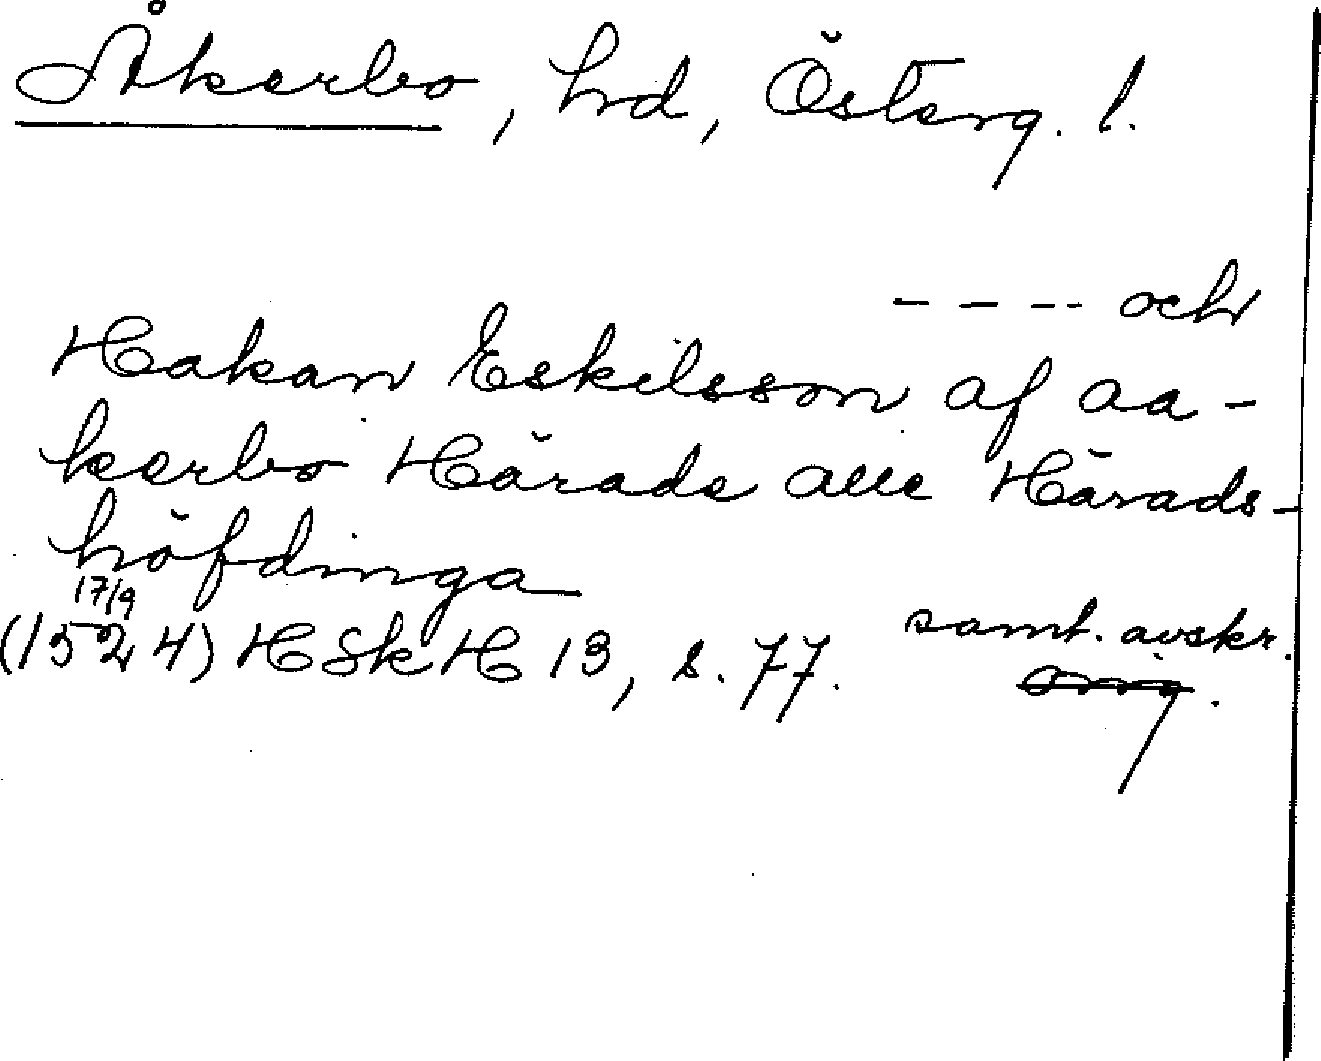 Åkerbo, hrd, Österg. l.
- - - - och
Hakan Eskilsson af aa-
kerbo Härade alle Härads-
höfdinga
17/9
(1524) HSkH 13, s. 77.
samt. avskr.
orig.